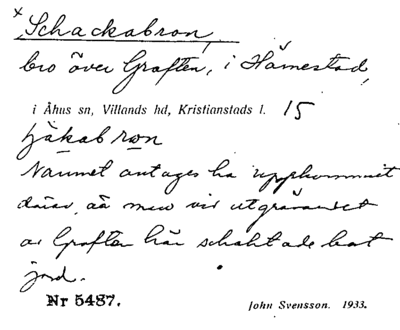 x Schackabron,
bro över Graften, i Hämestad,
i Åhus sn, Villands hd, Kristianstads l. 15
Namnet antages ha uppkommit
därav, då man vid utgrävandet
av Graften här schaktade bort
jord.
Nr 5487.
John Svensson. 1933.